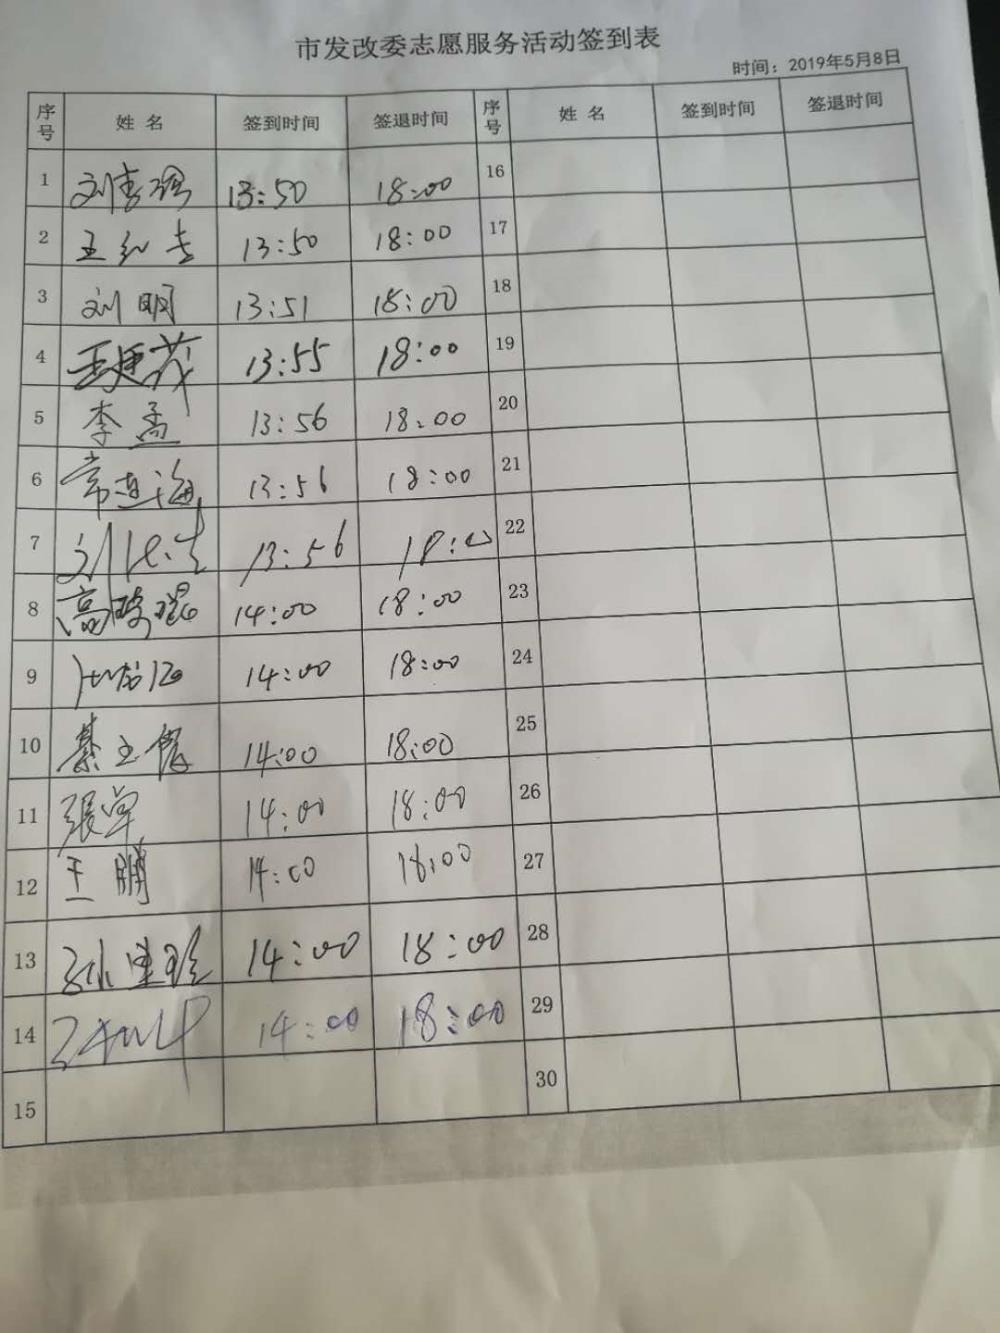 市发改委志愿服务活动签到表
时间：2019年5月8日
序号 姓名 签到时间 签退时间 序号 姓名 签到时间 签退时间
1 13:50 18:00 16
2 王红 13:50 18:00 17
3 刘明 13:51 18:00 18
4 王更茂 13:55 18:00 19
5 李孟 13:56 18:00 20
6 常连海 13:56 18:00 21
7 刘 13:56 18:00 22
8 高 14:00 18:00 23
9 14:00 18:00 24
10 綦玉 14:00 18:00 25
11 張军 14:00 18:00 26
12 王鹏 14:00 18:00 27
13 孙建 14:00 18:00 28
14 14:00 18:00 29
15 30